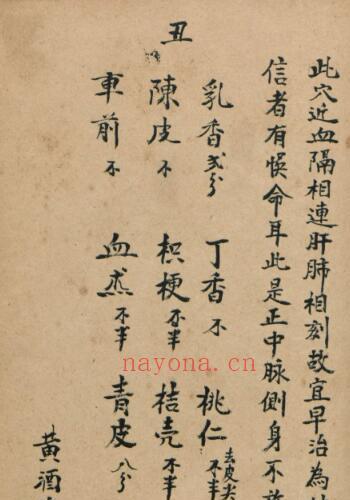 此穴近血隔相連肝肺相刻故宜早治為
信者有悞命耳此是正中脉側身不
丑
乳香弍分 丁香不 桃仁去皮尖不半
陳皮不 枳梗不半 桔壳不半
車前不 血不半 青皮八分
黃酒
nayona.cn